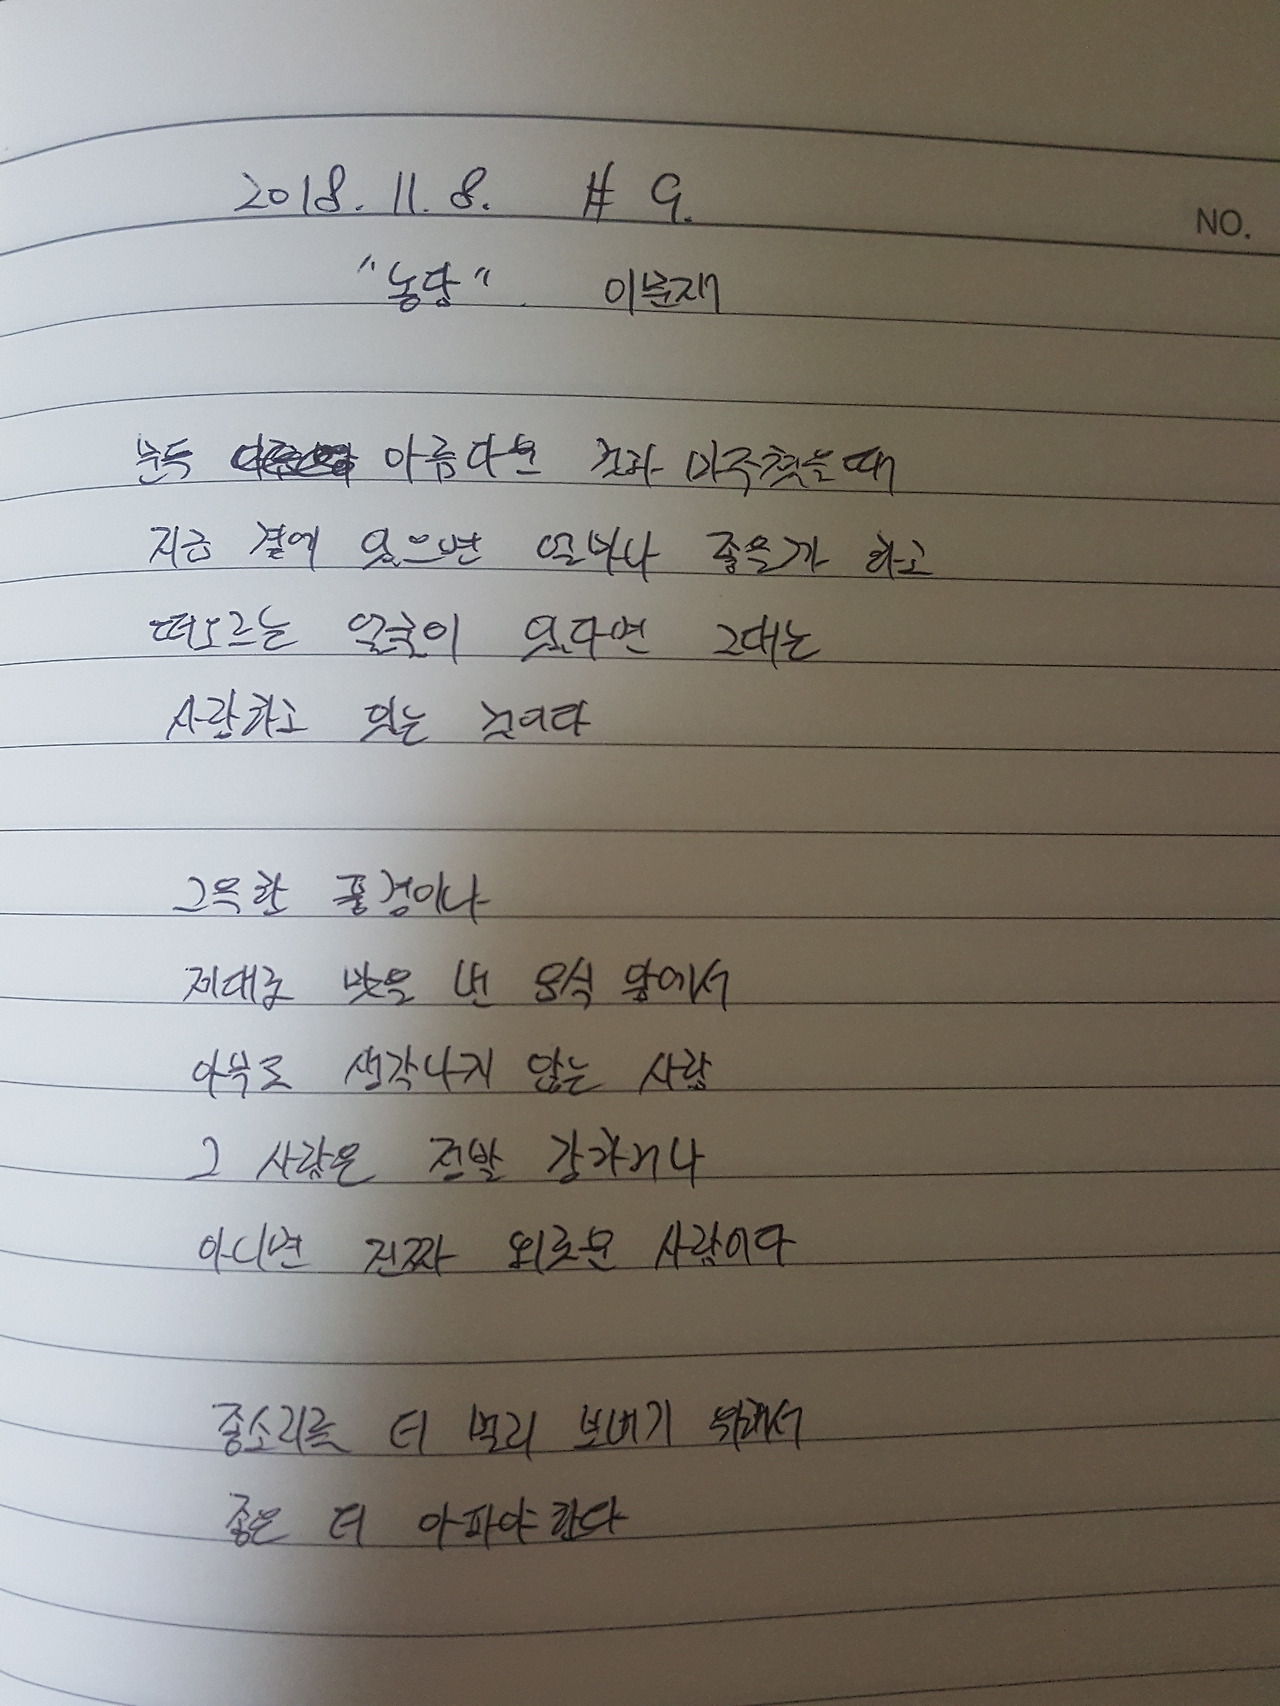 2018. 11. 8. # 9.
NO.
"농담". 이문재
문득 아름다운 것과 마주쳤을때
지금 곁에 있으면 얼마나 좋은가 하고
떠오르는 얼굴이 있다면 그대는
사랑하고 있는 것이다
그윽한 풍경이나
제대로 맛을 낸 음식 앞에서
아무도 생각나지 않는 사람
그 사람은 정말 강하거나
아니면 진짜 외로운 사람이다
종소리를 더 멀리 보내기 위해서
종은 더 아파야한다